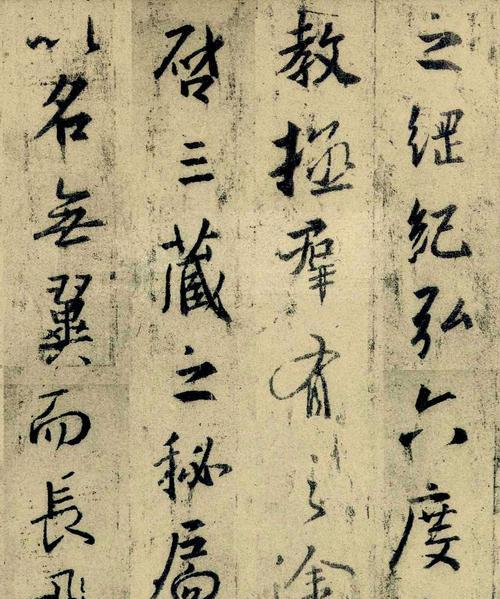 之綱紀弘六度
教拯羣有之塗
启三藏之秘扃
以名無翼而長飛